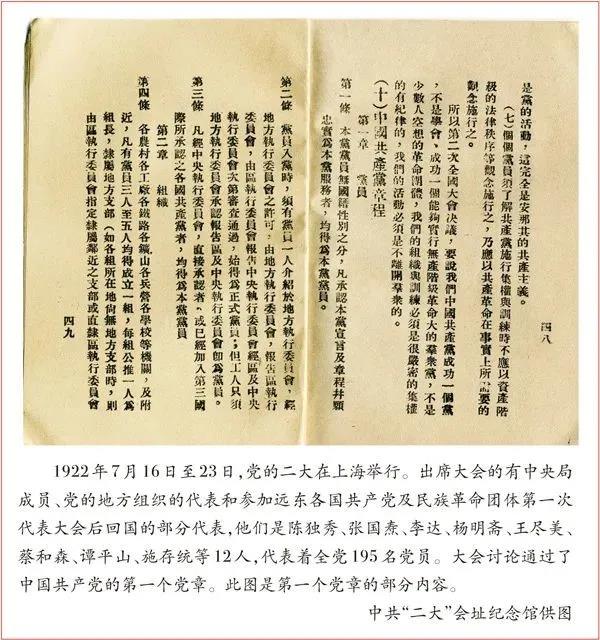 是黨的活動，這完全是安那其的共產主義。
(七)個個黨員須了解共產黨施行集權與訓練時不應以資產階
級的法律秩序等觀念施行之，乃應以共產革命在事實上所需要的
觀念施行之。
所以第二次全國大會決議，要說我們中國共產黨成功一個黨
，不是學會，成功一個能夠實行無產階級革命大的羣衆黨，不是
少數人空想的革命團體，我們的組織與訓練必須是很嚴密的集權
的有紀律的，我們的活動必須是不離開羣衆的。
(十)中國共產黨章程
第一章　黨員
第一條　本黨黨員無國籍性別之分，凡承認本黨宣言及章程幷願
忠實爲本黨服務者，均得爲本黨黨員。
四八
第二條　黨員入黨時，須有黨員一人介紹於地方執行委員會，經
地方執行委員會之許可，由地方執行委員會，報告區執行
委員會，由區執行委員會報告中央執行委員會經區及中央
執行委員會次第審查通過，始得爲正式黨員；但工人只須
地方執行委員會承認報告區及中央執行委員會卽爲黨員。
第三條　凡經中央執行委員會，直接承認者，或已經加入第三國
際所承認之各國共產黨者，均得爲本黨黨員
第二章　組織
第四條　各農村各工廠各鐵路各鑛山各兵營各學校等機關，及附
近，凡有黨員三人至五人均得成立一組，每組公推一人爲
組長，隸屬地方支部（如各組所在地尙無地方支部時，則
由區執行委員會指定隸屬鄰近之支部或直隸區執行委員會
四九
1922年7月16日至23日，党的二大在上海举行。出席大会的有中央局
成员、党的地方组织的代表和参加远东各国共产党及民族革命团体第一次
代表大会后回国的部分代表，他们是陈独秀、张国焘、李达、杨明斋、王尽美、
蔡和森、谭平山、施存统等12人，代表着全党195名党员。大会讨论通过了
中国共产党的第一个党章。此图是第一个党章的部分内容。
中共“二大”会址纪念馆供图